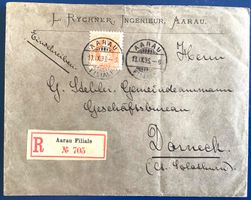 L. RYCHNER, INGENIEUR, AARAU.
Einschreiben
AARAU
FILIALE
AARAU
FILIALE
Herrn
Gemeindeammann
Geschäftsbureau
Dorneck
(Ct. Solothurn)
R
Aarau Filiale
№ 705